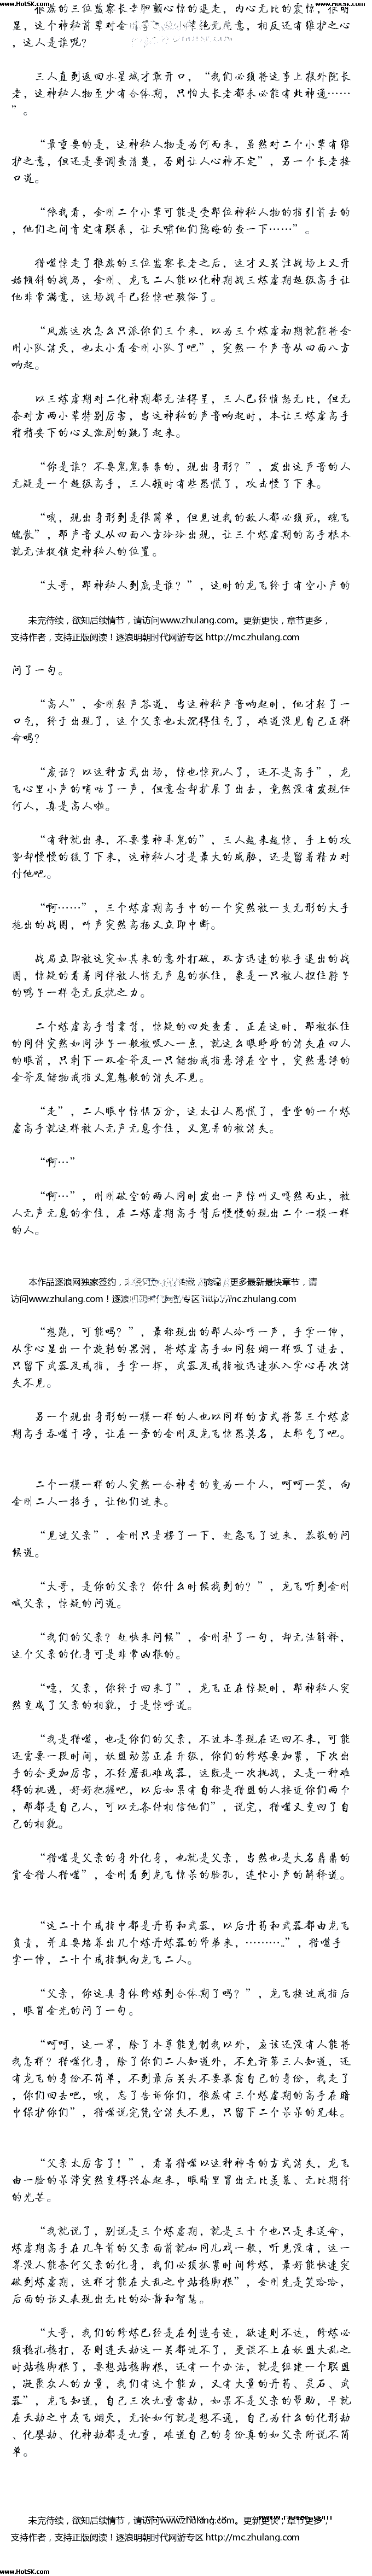 www.HotSK.com
狼族的三位监察长老
三人直到返回水星城才敢开口，“我们必须将这事上报外院长
老，这种神秘人物至少有合体期，只怕大长老都未必能有此神通……
”。
“最重要的是，这神秘人物是为何而来，虽然对二个小辈有维
护之意，但还是要调查清楚，否则让人心神不定”，另一个长老接
口道。
“依我看，金刚二个小辈可能是受那位神秘人物的指引前去的
，他们之间肯定有联系，让天啸他们隐晦的查一下……”。
猎噬惊走了狼族的三位监察长老之后，这才又关注战场上又开
始倾斜的战局，金刚、龙飞二人能以化神期战三炼虚期超级高手让
他非常满意，这场战斗已经惊世骇俗了。
“凤族这次怎么只派你们三个来，以为三个炼虚初期就能将金
刚小队消灭，也太小看金刚小队了吧”，突然一个声音从四面八方
响起。
以三炼虚期对二化神期都无法得逞，三人已经愤怒无比，但无
奈对方两小辈特别厉害，当这神秘的声音响起时，本让三炼虚高手
稍稍安下的心又激剧的跳了起来。
“你是谁？不要鬼鬼祟祟的，现出身形？”，发出这声音的人
无疑是一个超级高手，三人顿时有些恐慌了，攻击慢了下来。
“哦，现出身形到是很简单，但见过我的敌人都必须死，魂飞
魄散”，那声音又从四面八方冷冷出现，让三个炼虚期的高手根本
就无法捉锁定神秘人的位置。
“大哥，那神秘人到底是谁？”，这时的龙飞终于有空小声的
未完待续，欲知后续情节，请访问www.zhulang.com。更新更快，章节更多，
支持作者，支持正版阅读！逐浪明朝时代网游专区 http://mc.zhulang.com
问了一句。
“高人”，金刚轻声答道，当这神秘声音响起时，他才轻了一
口气，终于出现了，这个父亲也太沉得住气了，难道没见自己正拼
命吗？
“废话？以这种方式出场，惊也惊死人了，还不是高手”，龙
飞心里小声的嘀咕了一声，但意念却扩展了出去，竟然没有发现任
何人，真是高人啦。
“有种就出来，不要装神弄鬼的”，三人越来越惊，手上的攻
势却慢慢的缓了下来，这神秘人才是最大的威胁，还是留着精力对
付他吧。
“啊……”，三个炼虚期高手中的一个突然被一支无形的大手
拖出的战圈，叫声突然高扬又立即中断。
战局立即被这突如其来的意外打破，双方迅速的收手退出的战
圈，惊疑的看着同伴被人悄无声息的抓住，象是一只被人捏住脖子
的鸭子一样毫无反抗之力。
二个炼虚高手背靠背，惊疑的四处查看，正在这时，那被抓住
的同伴突然如同沙子一般被吸入一点，就这么眼睁睁的消失在四人
的眼前，只剩下一双金斧及一只储物戒指悬浮在空中，突然悬浮的
金斧及储物戒指又鬼魅般的消失不见。
“走”，二人眼中惊惧万分，这太让人恐慌了，堂堂的一个炼
虚高手就这样被人无声无息拿住，又鬼异的被消失。
“啊…”
“啊…”，刚刚破空的两人同时发出一声惊叫又嘎然而止，被
人无声无息的拿住，在二炼虚期高手背后慢慢的现出二个一模一样
的人。
本作品逐浪网独家签约，未更多最新最快章节，请
访问www.zhulang.com！逐浪明朝时代网游专区 http://mc.zhulang.com
“想跑，可能吗？”，最称现出的那人冷哼一声，手掌一伸，
从掌心里出一个旋转的黑洞，将炼虚高手如同轻烟一样吸了进去，
只留下武器及戒指，手掌一挥，武器及戒指被迅速扒入掌心再次消
失不见。
另一个现出身形的一模一样的人也以同样的方式将第三个炼虚
期高手吞噬干净，让在一旁的金刚及龙飞惊恐莫名，太邪乞了吧。
二个一模一样的人突然一合神奇的变为一个人，呵呵一笑，向
金刚二人一招手，让他们过来。
“见过父亲”，金刚只是楞了一下，赶急飞了过来，恭敬的问
候道。
“大哥，是你的父亲？你什么时候找到的？”，龙飞听到金刚
喊父亲，惊疑的问道。
“我们的父亲？赶快来问候”，金刚补了一句，却无法解释，
这个父亲的化身可是非常凶狠的。
“噫，父亲，你终于回来了”，龙飞正在惊疑时，那神秘人突
然变成了父亲的相貌，于是惊呼道。
“我是猎噬，也是你们的父亲，不过本尊现在还回不来，可能
还需要一段时间，妖盟动荡正在升级，你们的修炼要加紧，下次出
手的会更加厉害，不经磨乱难成器，这既是一次挑战，又是一种难
得的机遇，好好把握吧，以后如果有自称是猎噬的人接近你们两个
，那都是自己人，可以无条件相信他们”，说完，猎噬又变回了自
己的相貌。
“猎噬是父亲的身外化身，也就是父亲，当然也是大名鼎鼎的
赏金猎人猎噬”，金刚看到龙飞惊呆的脸孔，连忙小声的解释道。
“这二十个戒指中都是丹药和武器，以后丹药和武器都由龙飞
负责，并且要培养出几个炼丹炼器的师弟来，………..”，猎噬手
掌一伸，二十个戒指飘向龙飞二人。
“父亲，你这具身体修炼到合体期了吗？”，龙飞接过戒指后
，眼冒金光的问了一句。
“呵呵，这一界，除了本尊能克制我以外，应该还没有人能将
我怎样？猎噬化身，除了你们二人知道外，不允许第三人知道，还
有龙飞的身份不简单，不到最后关头不要暴露自己的身份，我走了
，你们回去吧，哦，忘了告诉你们，狼族有三个炼虚期的高手在暗
中保护你们”，猎噬说完凭空消失不见，只留下二个呆呆的兄妹。
“父亲太厉害了！”，看着猎噬以这种神奇的方式消失，龙飞
由一脸的呆滞突然变得兴奋起来，眼睛里冒出无比羡慕、无比期待
的光芒。
“我就说了，别说是三个炼虚期，就是三十个也只是来送命，
炼虚期高手在几年前的父亲面前就如同儿戏一般，听见没有，这一
界没人能奈何父亲的化身，我们必须抓紧时间修炼，最好能快速突
破到炼虚期，这样才能在大乱之中站稳脚根”，金刚先是笑哈哈，
后面的话又表现出无比的冷静和智慧。
“大哥，我们的修炼已经是在创造奇迹，欲速则不达，修炼必
须稳扎稳打，否则连天劫这一关都过不了，更谈不上在妖盟大乱之
时站稳脚根了，要想站稳脚根，还有一个办法，就是组建一个联盟
，凝聚众人的力量，我们有这个能力，又有大量的丹药、灵石、武
器”，龙飞知道，自己三次九重雷劫，如果不是父亲的帮助，早就
在天劫之中灰飞烟灭，无论如何就是想不通，自己为什么的化形劫
、化婴劫、化神劫都是九重，难道自己的身份真的如父亲所说不简
单。
未完待续，欲知后续情节，请访问www.zhulang.com。更新更快，章节更多，
支持作者，支持正版阅读！逐浪明朝时代网游专区 http://mc.zhulang.com
www.HotSK.com